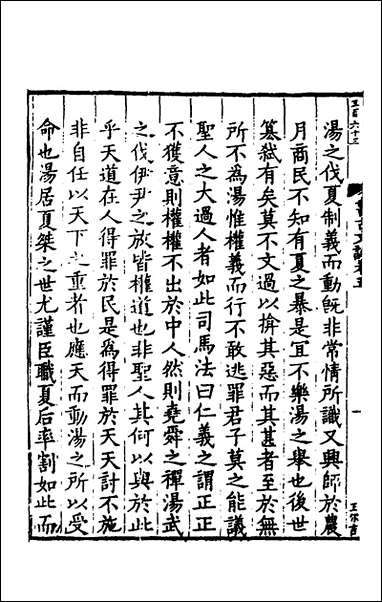 湯之伐夏制義而動旣非常情所識又興師於農
月商民不知有夏之暴是冝不樂湯之舉也後世
簒弑有矣莫不文過以揜其惡而其甚者至於無
所不為湯惟權義而行不敢逃罪君子莫之能議
聖人之大過人者如此司馬法曰仁義之謂正正
不獲意則權權不出於中人然則堯舜之禪湯武
之伐伊尹之放皆權道也非聖人其何以與於此
乎天道在人得罪於民是為得罪於天天討不施
非自任以天下之重者也應天而動湯之所以受
命也湯居夏桀之世尤謹臣職夏后率割如此而